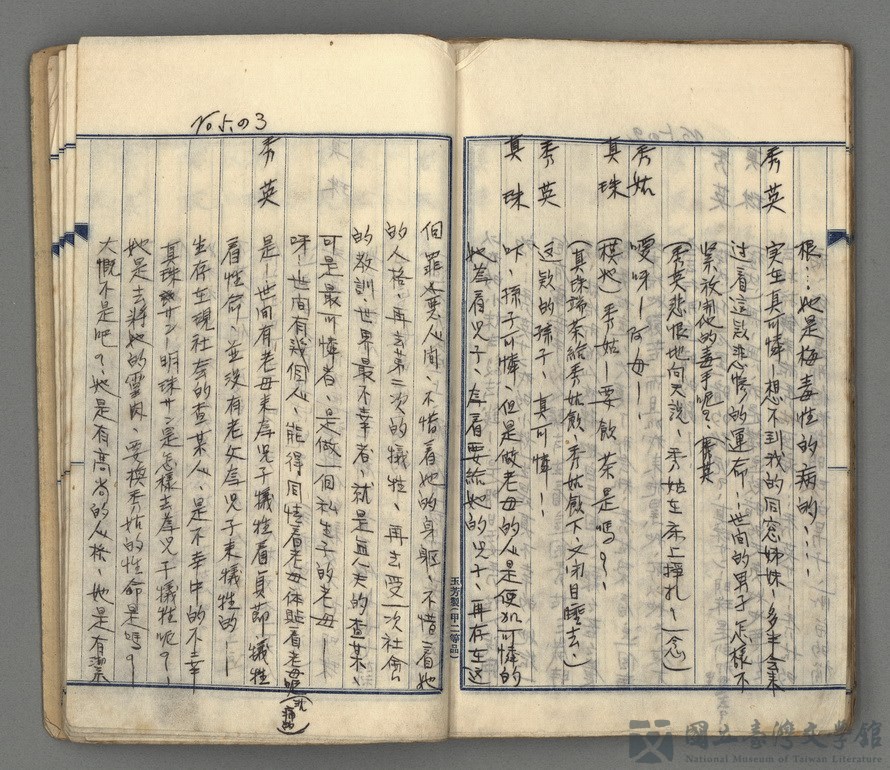 根…她是梅毒性的病的….
秀英 实在真可憐ー想不到我的同窓姊妹、多半会来
过着這款悲慘的運命ー世間的男子怎樣不
緊放開他的毒手呢？
（秀英悲恨地向天說、秀姑在床上掙扎ー（念）
秀姑 噯呀ー阿母ー
真珠 （摸她）秀姑ー要飲茶是嗎？、
（真珠端茶給秀姑飲、秀姑飲下、又闭目睡去、）
秀英 這款的孫子、真可憐！！
真珠 咔、孫子可憐、但是做老母的人是使加可憐的
她為着児子、為着要給她的児子、再存在这
個罪惡人間、不惜着她的身軀、不惜着她
的人格、再去第二次的犠牲、再去受一次社會
的教訓、世界最不幸者、就是無夫的查某、
可是最可憐者、是做一個私生子的老母ー
呀ー世間有幾個人、能得同情着老母体貼着老母呢
秀英 是ー世間有老母来為児子犠牲着貞節、犠牲
着性命、並沒有老父為児子来犠牲的ー
生存在現社会的查某人、是不幸中的不幸
真珠サンー明珠サン是怎樣去為児子犠牲呢？ー
她是去将她的靈肉、要換秀姑的性命是嗎？ー
大慨不是吧？、她是有高尚的人格、她是有潔
No 5の3
玉芳製(甲二等品)
國立臺灣文學館
National Museum of Taiwan Literature